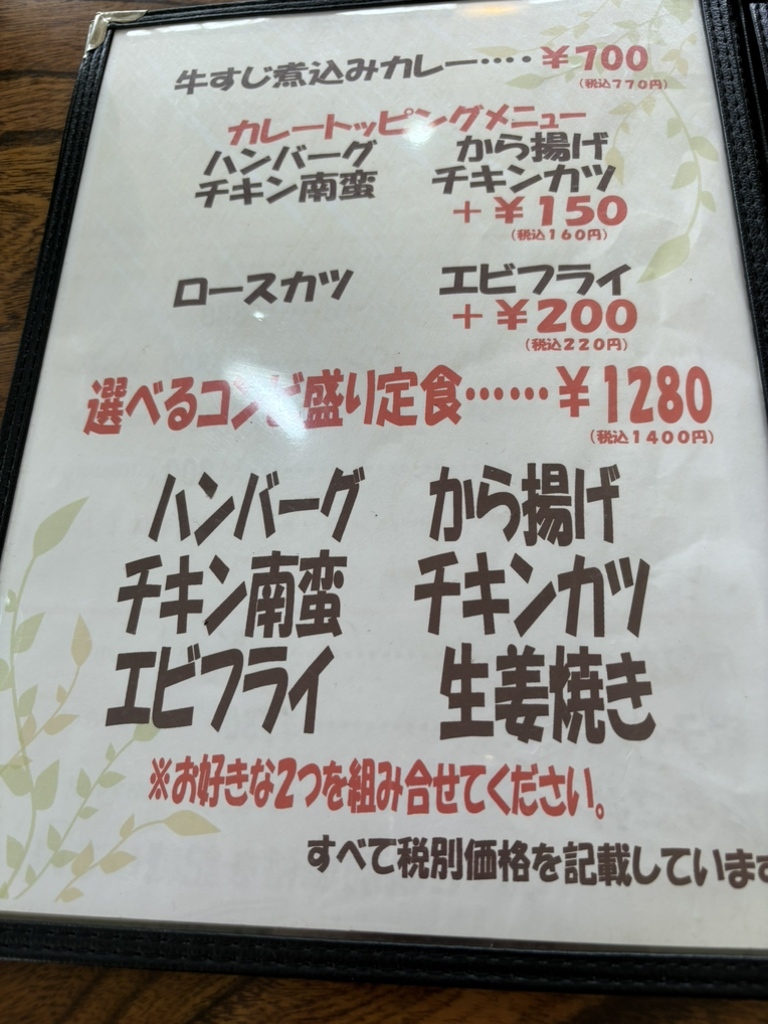 牛すじ煮込みカレー････￥700
(税込770円)
カレートッピングメニュー
ハンバーグ から揚げ
チキン南蛮 チキンカツ
＋￥150
(税込160円)
ロースカツ エビフライ
＋￥200
(税込220円)
選べるコンビ盛り定食……￥1280
(税込1400円)
ハンバーグ から揚げ
チキン南蛮 チキンカツ
エビフライ 生姜焼き
※お好きな2つを組み合せてください。
すべて税別価格を記載しています